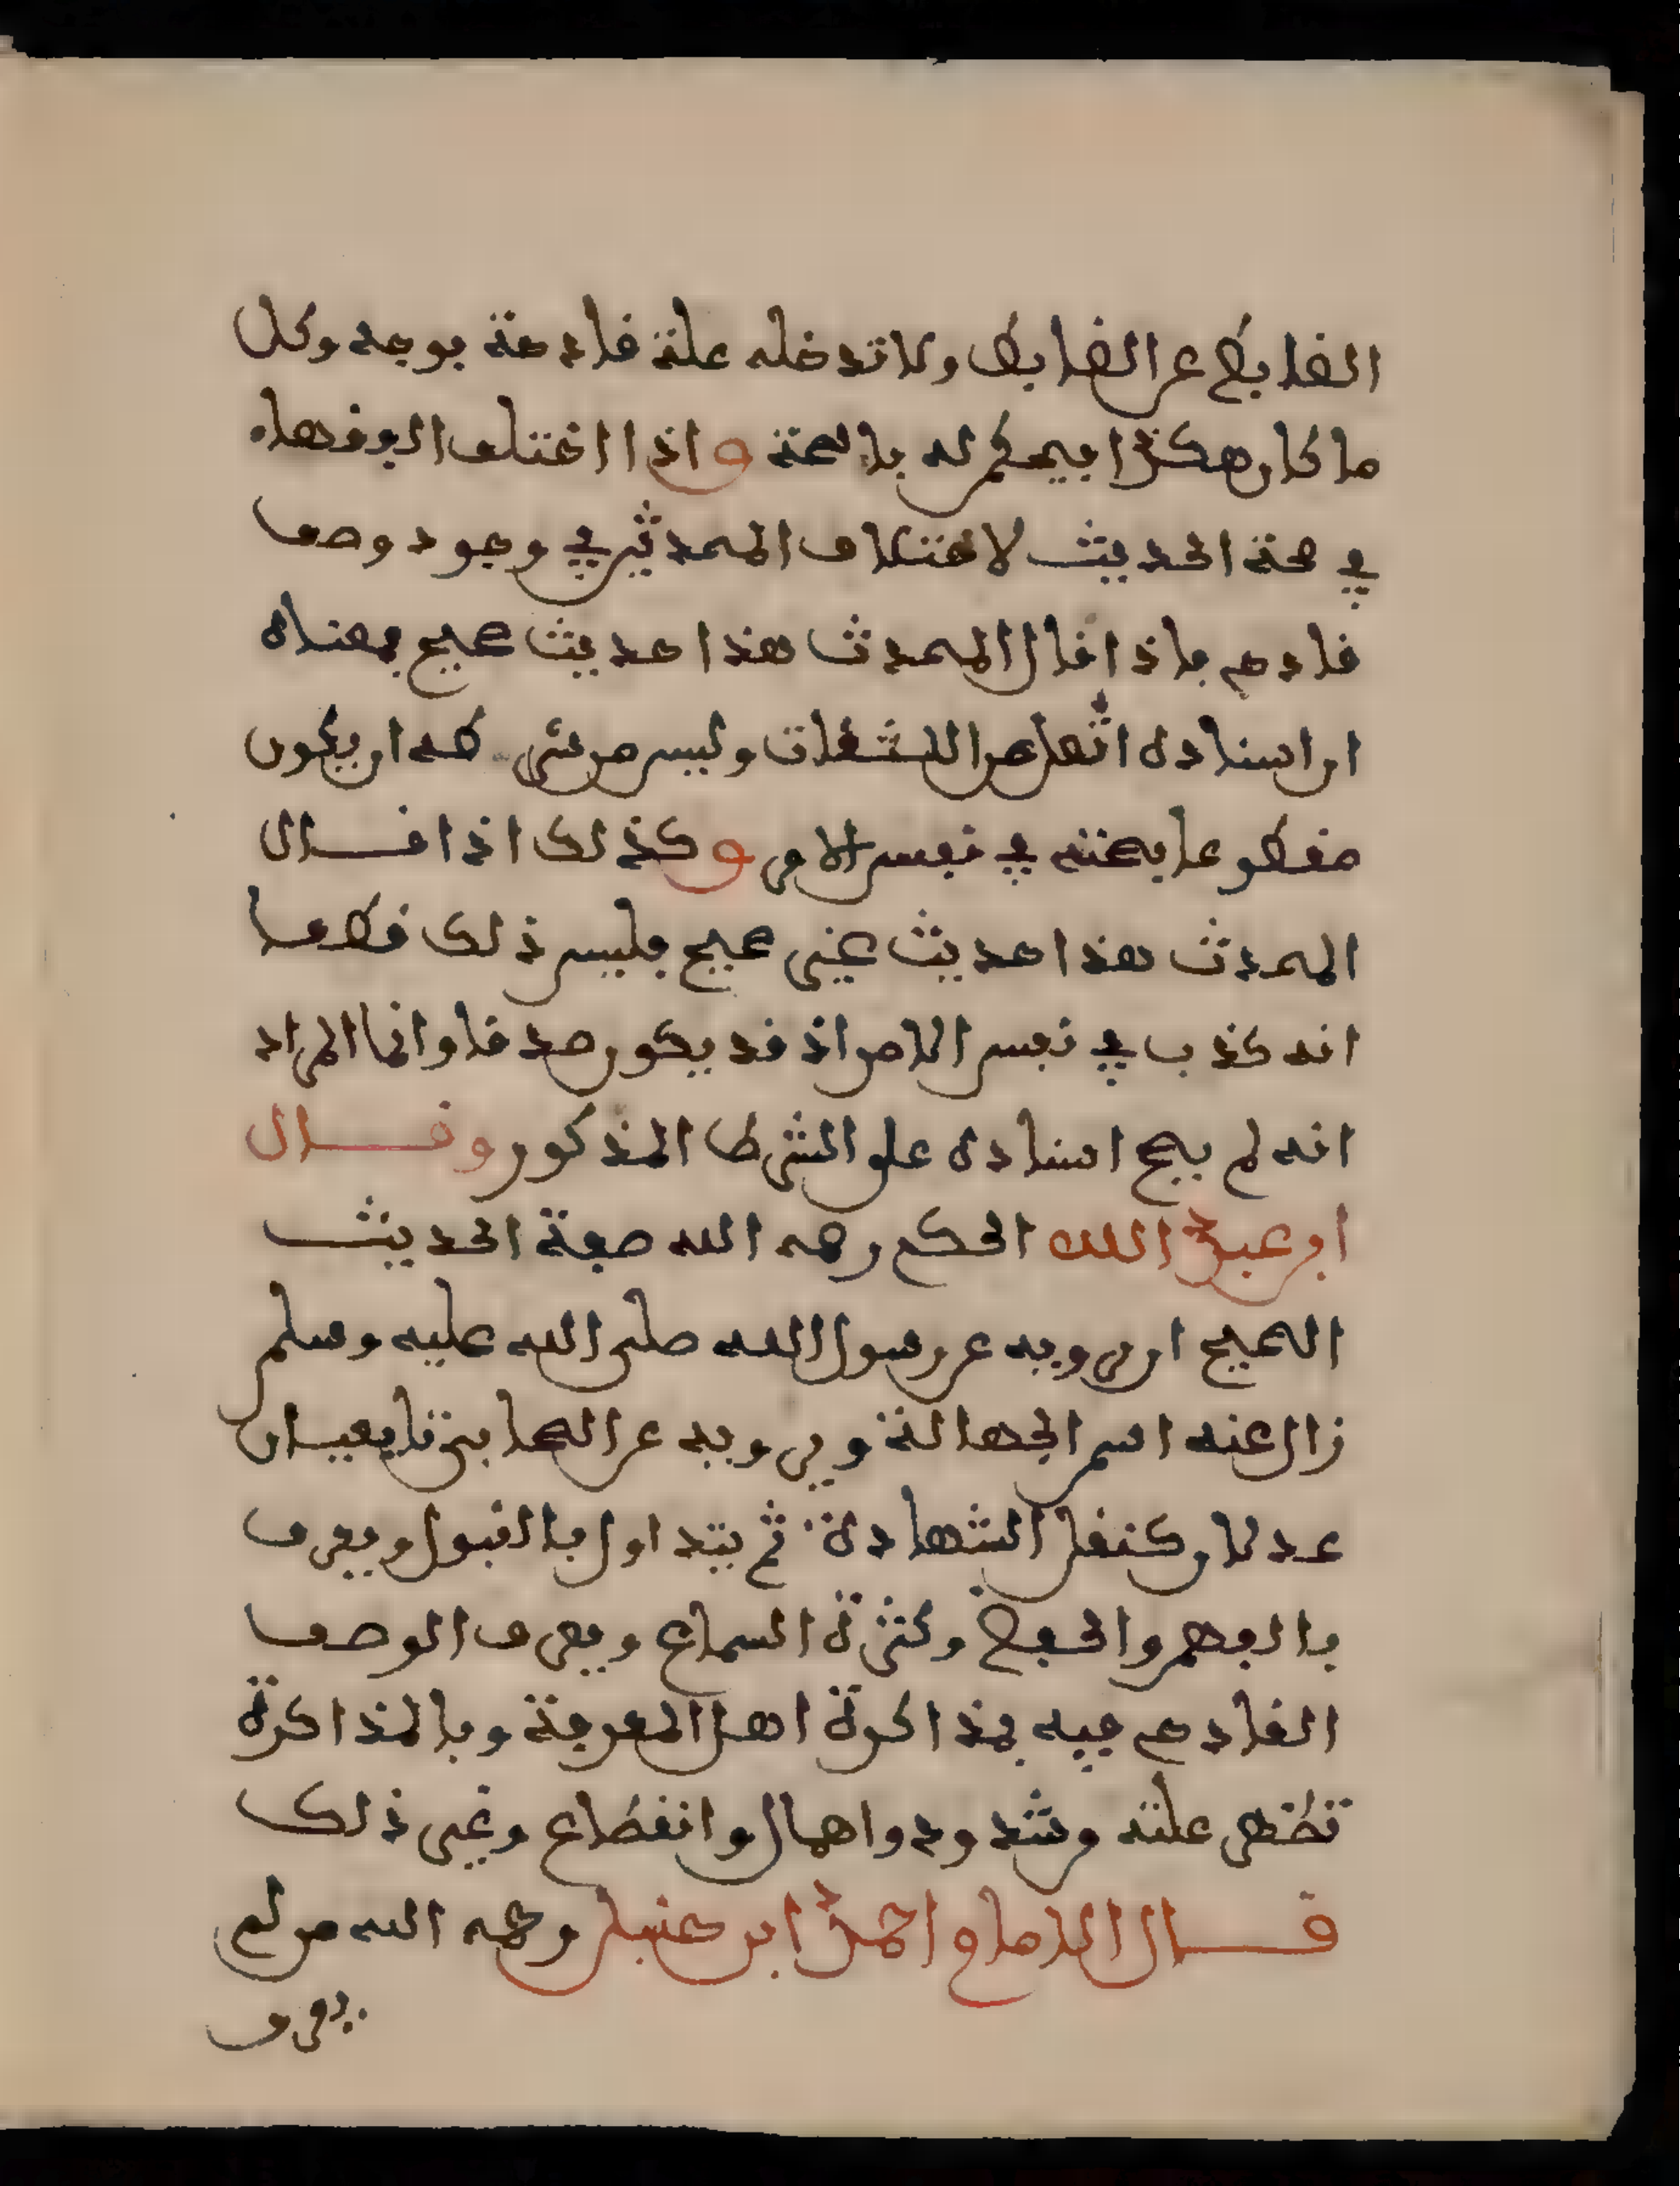 الضابط عن الضابط ولا تدخله علة قادحة بوجه وكل
ما كان هكذا فيحكم له بالصحة واذا اختلف الفقهاء
في صحة الحديث لاختلاف المحدثين في وجود وصف
قادح فاذا قال المحدث هذا حديث صحيح فمعناه
ان اسناده اتصل من الثقات وليس من شرطه ان يكون
مقطوعا بصحته في نفس الامر وكذلك اذا قال
المحدث هذا حديث غير صحيح فليس ذلك قطعا
انه كذب في نفس الامر اذ قد يكون صدقا وانما المراد
انه لم يصح اسناده على الشرط المذكور وقال
ابو عبد الله الحكم رحمه الله صفة الحديث
الصحيح ان يرويه عن رسول الله صلى الله عليه وسلم
زال عنه اسم الجهالة ويرويه عن الصحابي تابعيان
عدلان كنقل الشهادة ثم يتداول بالقبول ويعرف
بالفهم والحفظ وكثرة السماع ويعرف الوصف
القادح فيه بمذاكرة اهل المعرفة وبالمذاكرة
تظهر علته وشدود واهمال وانقطاع وغير ذلك
قال الامام احمد ابن حنبل رحمه الله من لم
يعرف